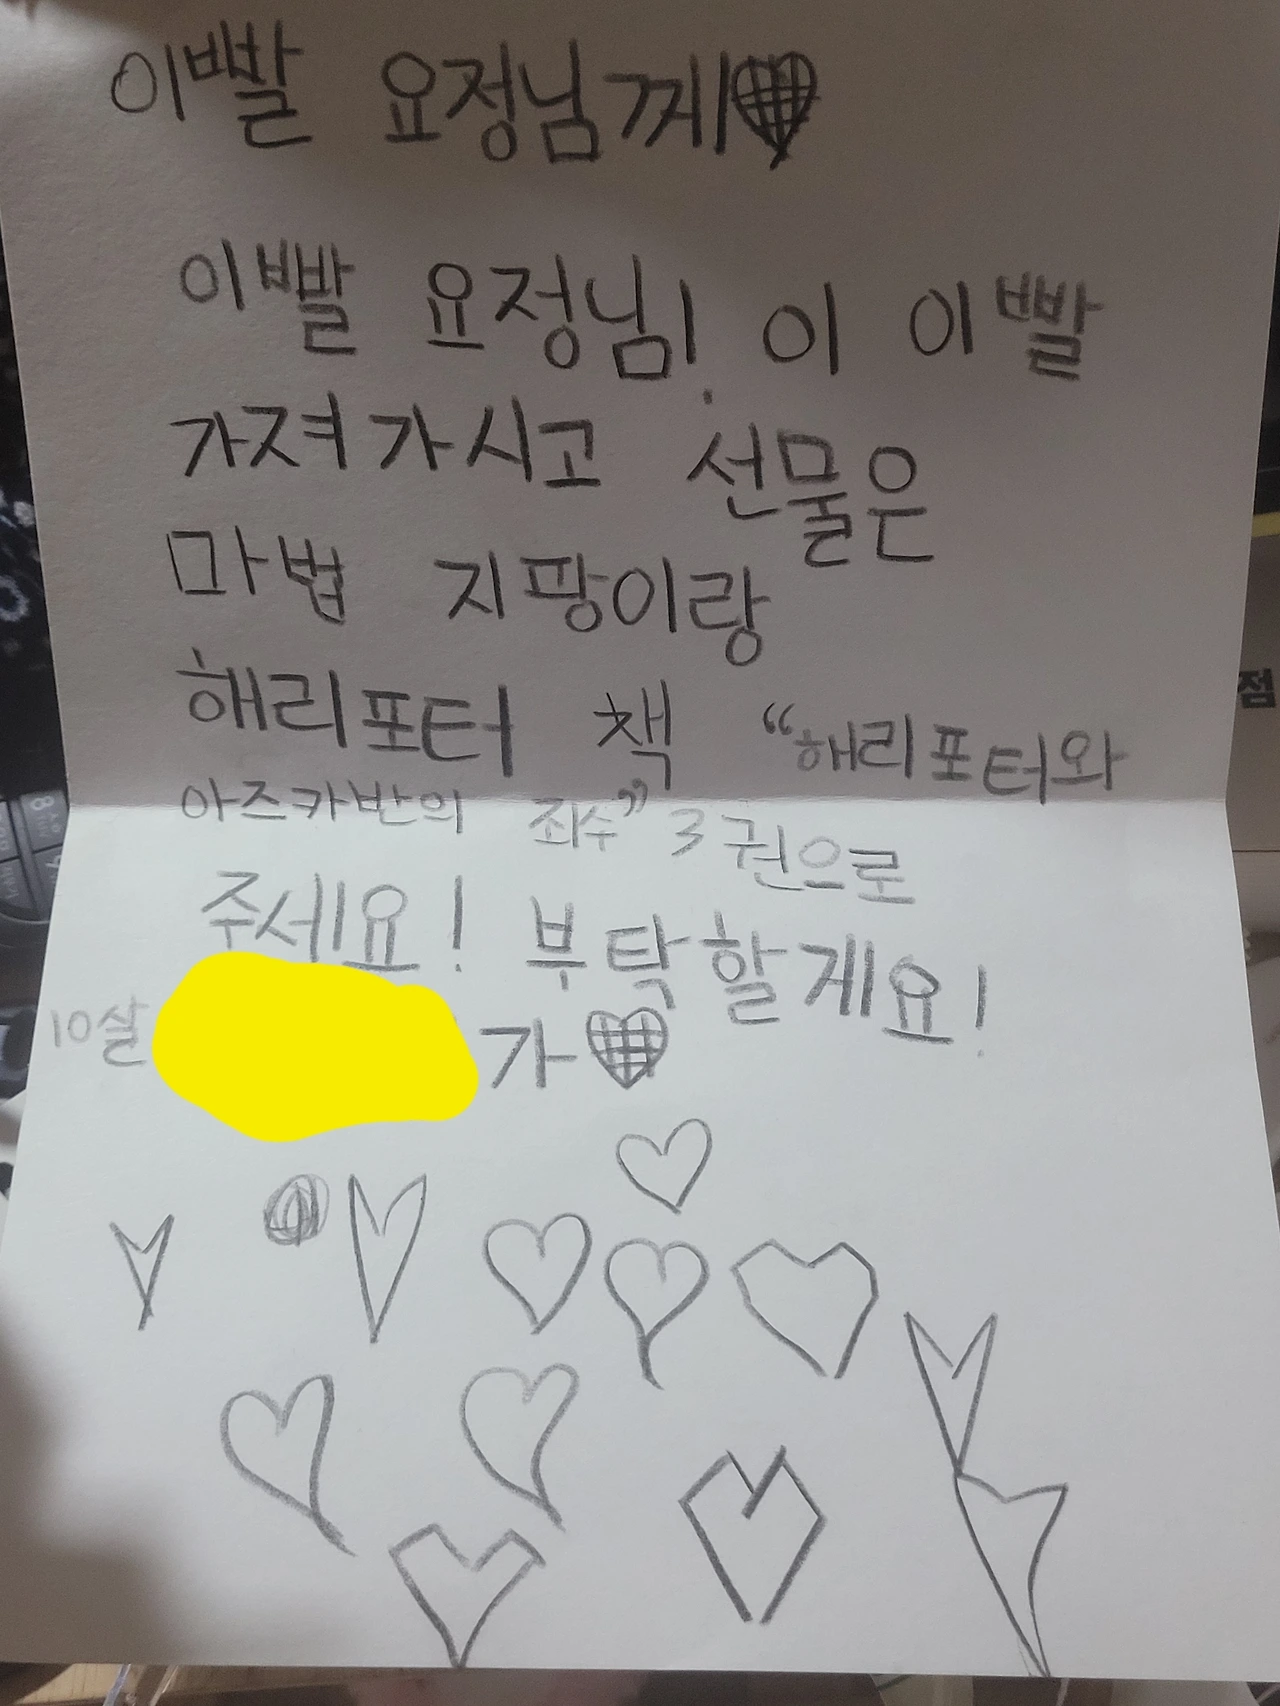 이빨 요정님께♥
이빨 요정님! 이 이빨
가져가시고 선물은
마법 지팡이랑
해리포터 책 “해리포터와
아즈카반의 죄수” 3권으로
주세요! 부탁할게요!
10살 가♥
점